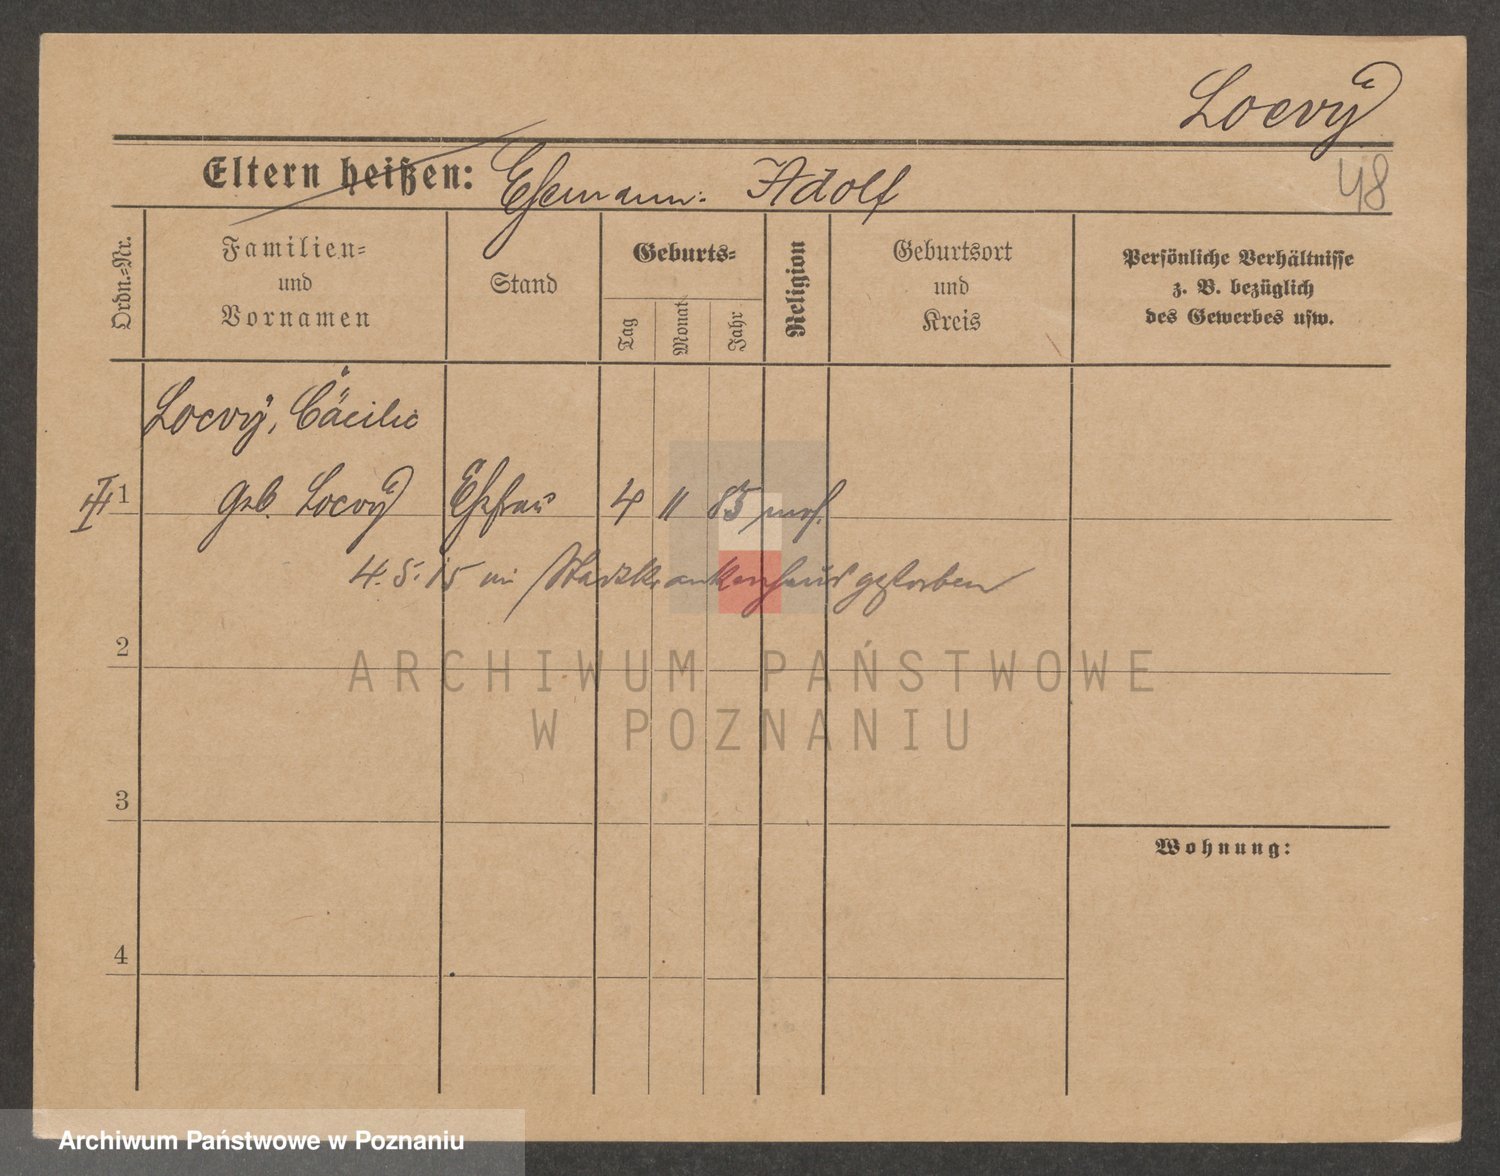 Loevÿ
48
Eltern heißen: Ehemann: Adolf
Ordn.=Nr.
Familien=
und
Vornamen
Stand
Geburts=
Tag
Monat
Jahr
Religion
Geburtsort
und
Kreis
Persönliche Verhältnisse
z. B. bezüglich
des Gewerbes usw.
Loevÿ, Cäcilie
III 1 geb. Loevÿ Ehefrau 4 11 85 mos.
4.5.15 im Stadtkrankenhaus gestorben
2
ARCHIWUM PAŃSTWOWE
W POZNANIU
3
Wohnung:
4
Archiwum Państwowe w Poznaniu